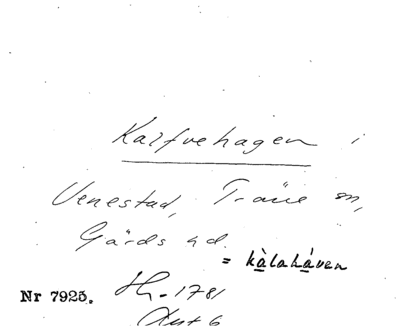 Kalfvehagen i
Venestad, Träne sn,
Gärds hd.
= kàlahá̀ven
Nr 7925. Hh. 1781
Akt 6